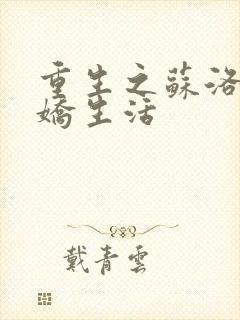 重生之蘇洛
嬌生活
戴青雲